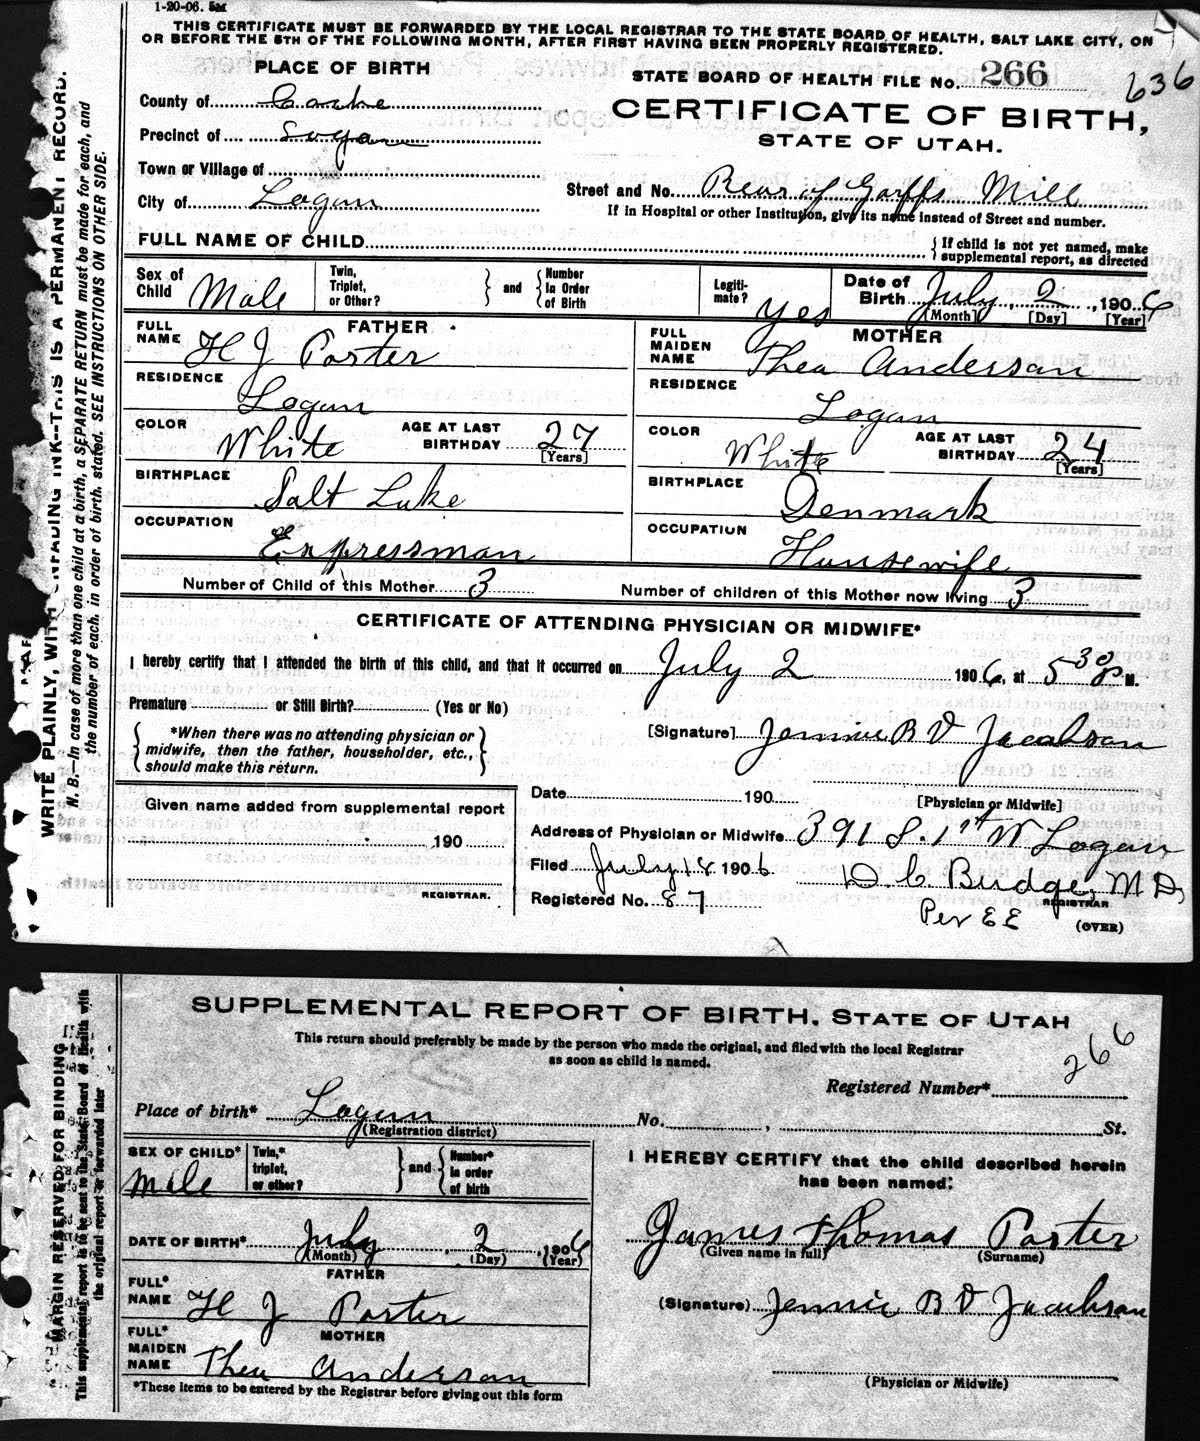 1-20-06. 5m
THIS CERTIFICATE MUST BE FORWARDED BY THE LOCAL REGISTRAR TO THE STATE BOARD OF HEALTH, SALT LAKE CITY, ON
OR BEFORE THE 5TH OF THE FOLLOWING MONTH, AFTER FIRST HAVING BEEN PROPERLY REGISTERED.
PLACE OF BIRTH
STATE BOARD OF HEALTH FILE No. 266
636
County of Cache
CERTIFICATE OF BIRTH,
Precinct of Logan
STATE OF UTAH.
Town or Village of
Street and No. Rear of Garffs Mill
City of Logan
If in Hospital or other Institution, give its name instead of Street and number.
FULL NAME OF CHILD
{ If child is not yet named, make
supplemental report, as directed
Sex of Child Male
Twin, Triplet, or Other? } and { Number In Order of Birth
Legiti-mate? Yes
Date of Birth July 2, 1906
[Month] [Day] [Year]
FATHER
MOTHER
FULL NAME H J Porter
FULL MAIDEN NAME Thea Anderson
RESIDENCE Logan
RESIDENCE Logan
COLOR White AGE AT LAST BIRTHDAY 27 [Years]
COLOR White AGE AT LAST BIRTHDAY 24 [Years]
BIRTHPLACE Salt Lake
BIRTHPLACE Denmark
OCCUPATION Expressman
OCCUPATION Housewife
Number of Child of this Mother 3 Number of children of this Mother now living 3
CERTIFICATE OF ATTENDING PHYSICIAN OR MIDWIFE*
I hereby certify that I attended the birth of this child, and that it occurred on July 2 1906, at 5 30 P M.
Premature or Still Birth? (Yes or No)
{ *When there was no attending physician or
midwife, then the father, householder, etc.,
should make this return. }
[Signature] Jennie B V Jacobson
[Physician or Midwife]
Date 190
Given name added from supplemental report
190
REGISTRAR.
Address of Physician or Midwife 391 S. 1st W Logan
Filed July 18 1906
D. C. Budge, M D,
REGISTRAR
Registered No. 87
Per EE
(OVER)
WRITE PLAINLY, WITH UNFADING INK--THIS IS A PERMANENT RECORD.
N. B.—In case of more than one child at a birth, a SEPARATE RETURN must be made for each, and
the number of each, in order of birth, stated. SEE INSTRUCTIONS ON OTHER SIDE.
SUPPLEMENTAL REPORT OF BIRTH, STATE OF UTAH
This return should preferably be made by the person who made the original, and filed with the local Registrar
as soon as child is named.
Registered Number* 266
Place of birth* Logan No. , St.
(Registration district)
SEX OF CHILD* Male
Twin,* triplet, or other? } and { Number* in order of birth
I HEREBY CERTIFY that the child described herein
has been named:
James Thomas Porter
(Given name in full) (Surname)
DATE OF BIRTH* July 2, 1906
(Month) (Day) (Year)
FATHER
FULL* NAME H J Porter
(Signature) Jennie B V Jacobson
MOTHER
FULL* MAIDEN NAME Thea Anderson
(Physician or Midwife)
*These items to be entered by the Registrar before giving out this form
MARGIN RESERVED FOR BINDING
This supplemental report is to be sent to the State Board of Health with
the original report or forwarded later